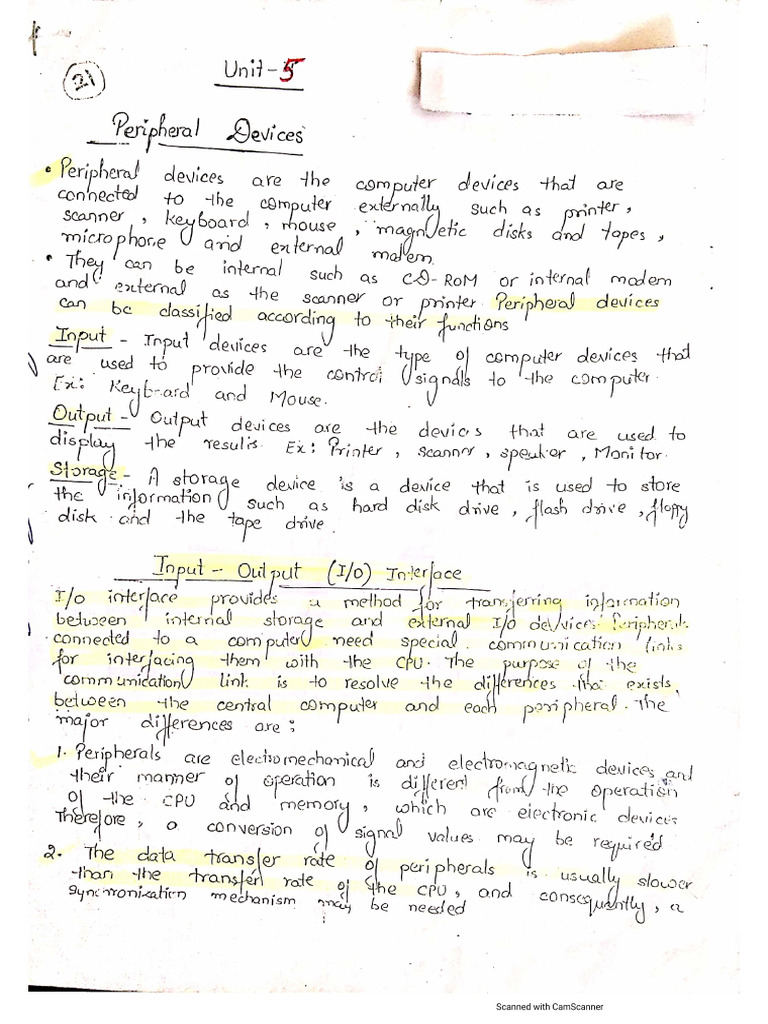 21
Unit-5
Peripheral Devices
• Peripheral devices are the computer devices that are
connected to the computer externally such as printer,
scanner, keyboard, mouse, magnetic disks and tapes,
microphone and external modem.
• They can be internal such as CD-ROM or internal modem
and external as the scanner or printer. Peripheral devices
can be classified according to their functions
Input - Input devices are the type of computer devices that
are used to provide the control signals to the computer.
Ex: Keyboard and Mouse.
Output - Output devices are the devices that are used to
display the results. Ex: Printer, scanner, speaker, Monitor.
Storage - A storage device is a device that is used to store
the information such as hard disk drive, flash drive, floppy
disk and the tape drive.
Input - Output (I/O) Interface
I/o interface provides a method for transferring information
between internal storage and external I/o devices. Peripherals
connected to a computer need special communication links
for interfacing them with the CPU. The purpose of the
communication link is to resolve the differences that exists
between the central computer and each peripheral. The
major differences are:
1. Peripherals are electromechanical and electromagnetic devices and
their manner of operation is different from the operation
of the CPU and memory, which are electronic devices
Therefore, a conversion of signal values may be required
2. The data transfer rate of peripherals is usually slower
than the transfer rate of the CPU, and consequently, a
synchronization mechanism may be needed
Scanned with CamScanner